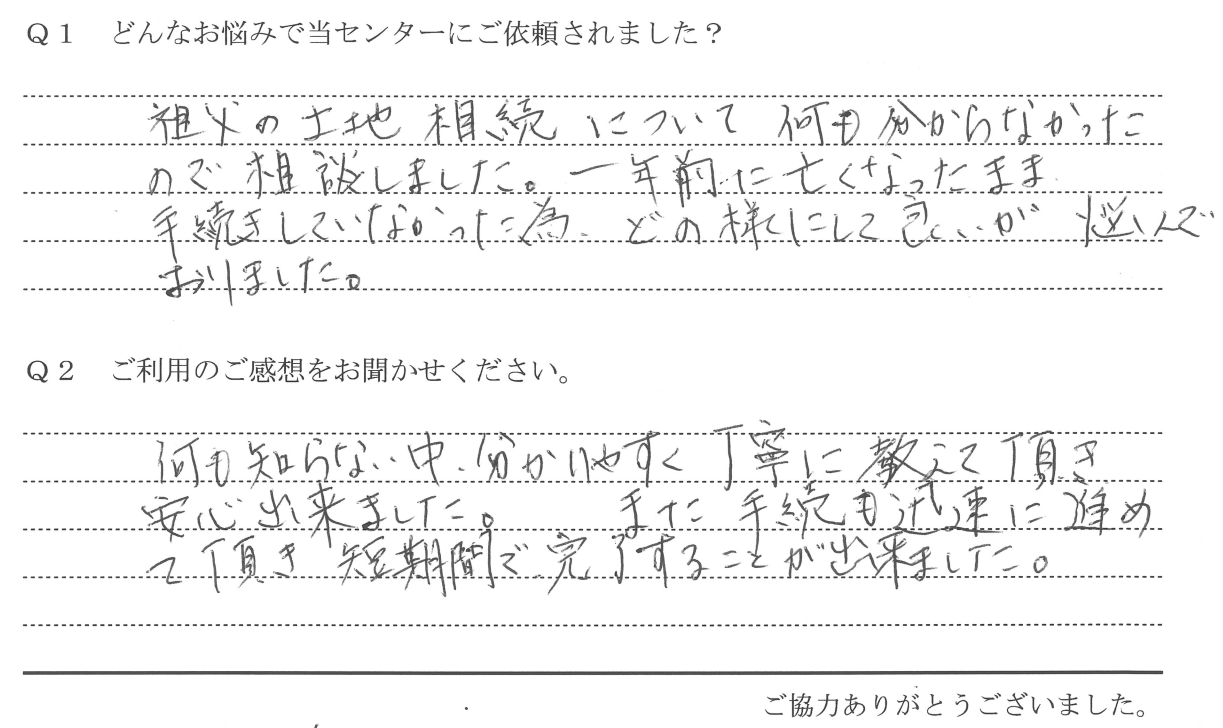 Q1 どんなお悩みで当センターにご依頼されました？
祖父の土地 相続 について 何も分からなかった
ので 相談しました。一年前に亡くなったまま
手続きしていなかった為、どの様にして良いか 悩んで
おりました。
Q2 ご利用のご感想をお聞かせください。
何も知らない中、分かりやすく丁寧に教えて頂き
安心出来ました。 また 手続も迅速に進め
て頂き 短期間で完了することが出来ました。
ご協力ありがとうございました。